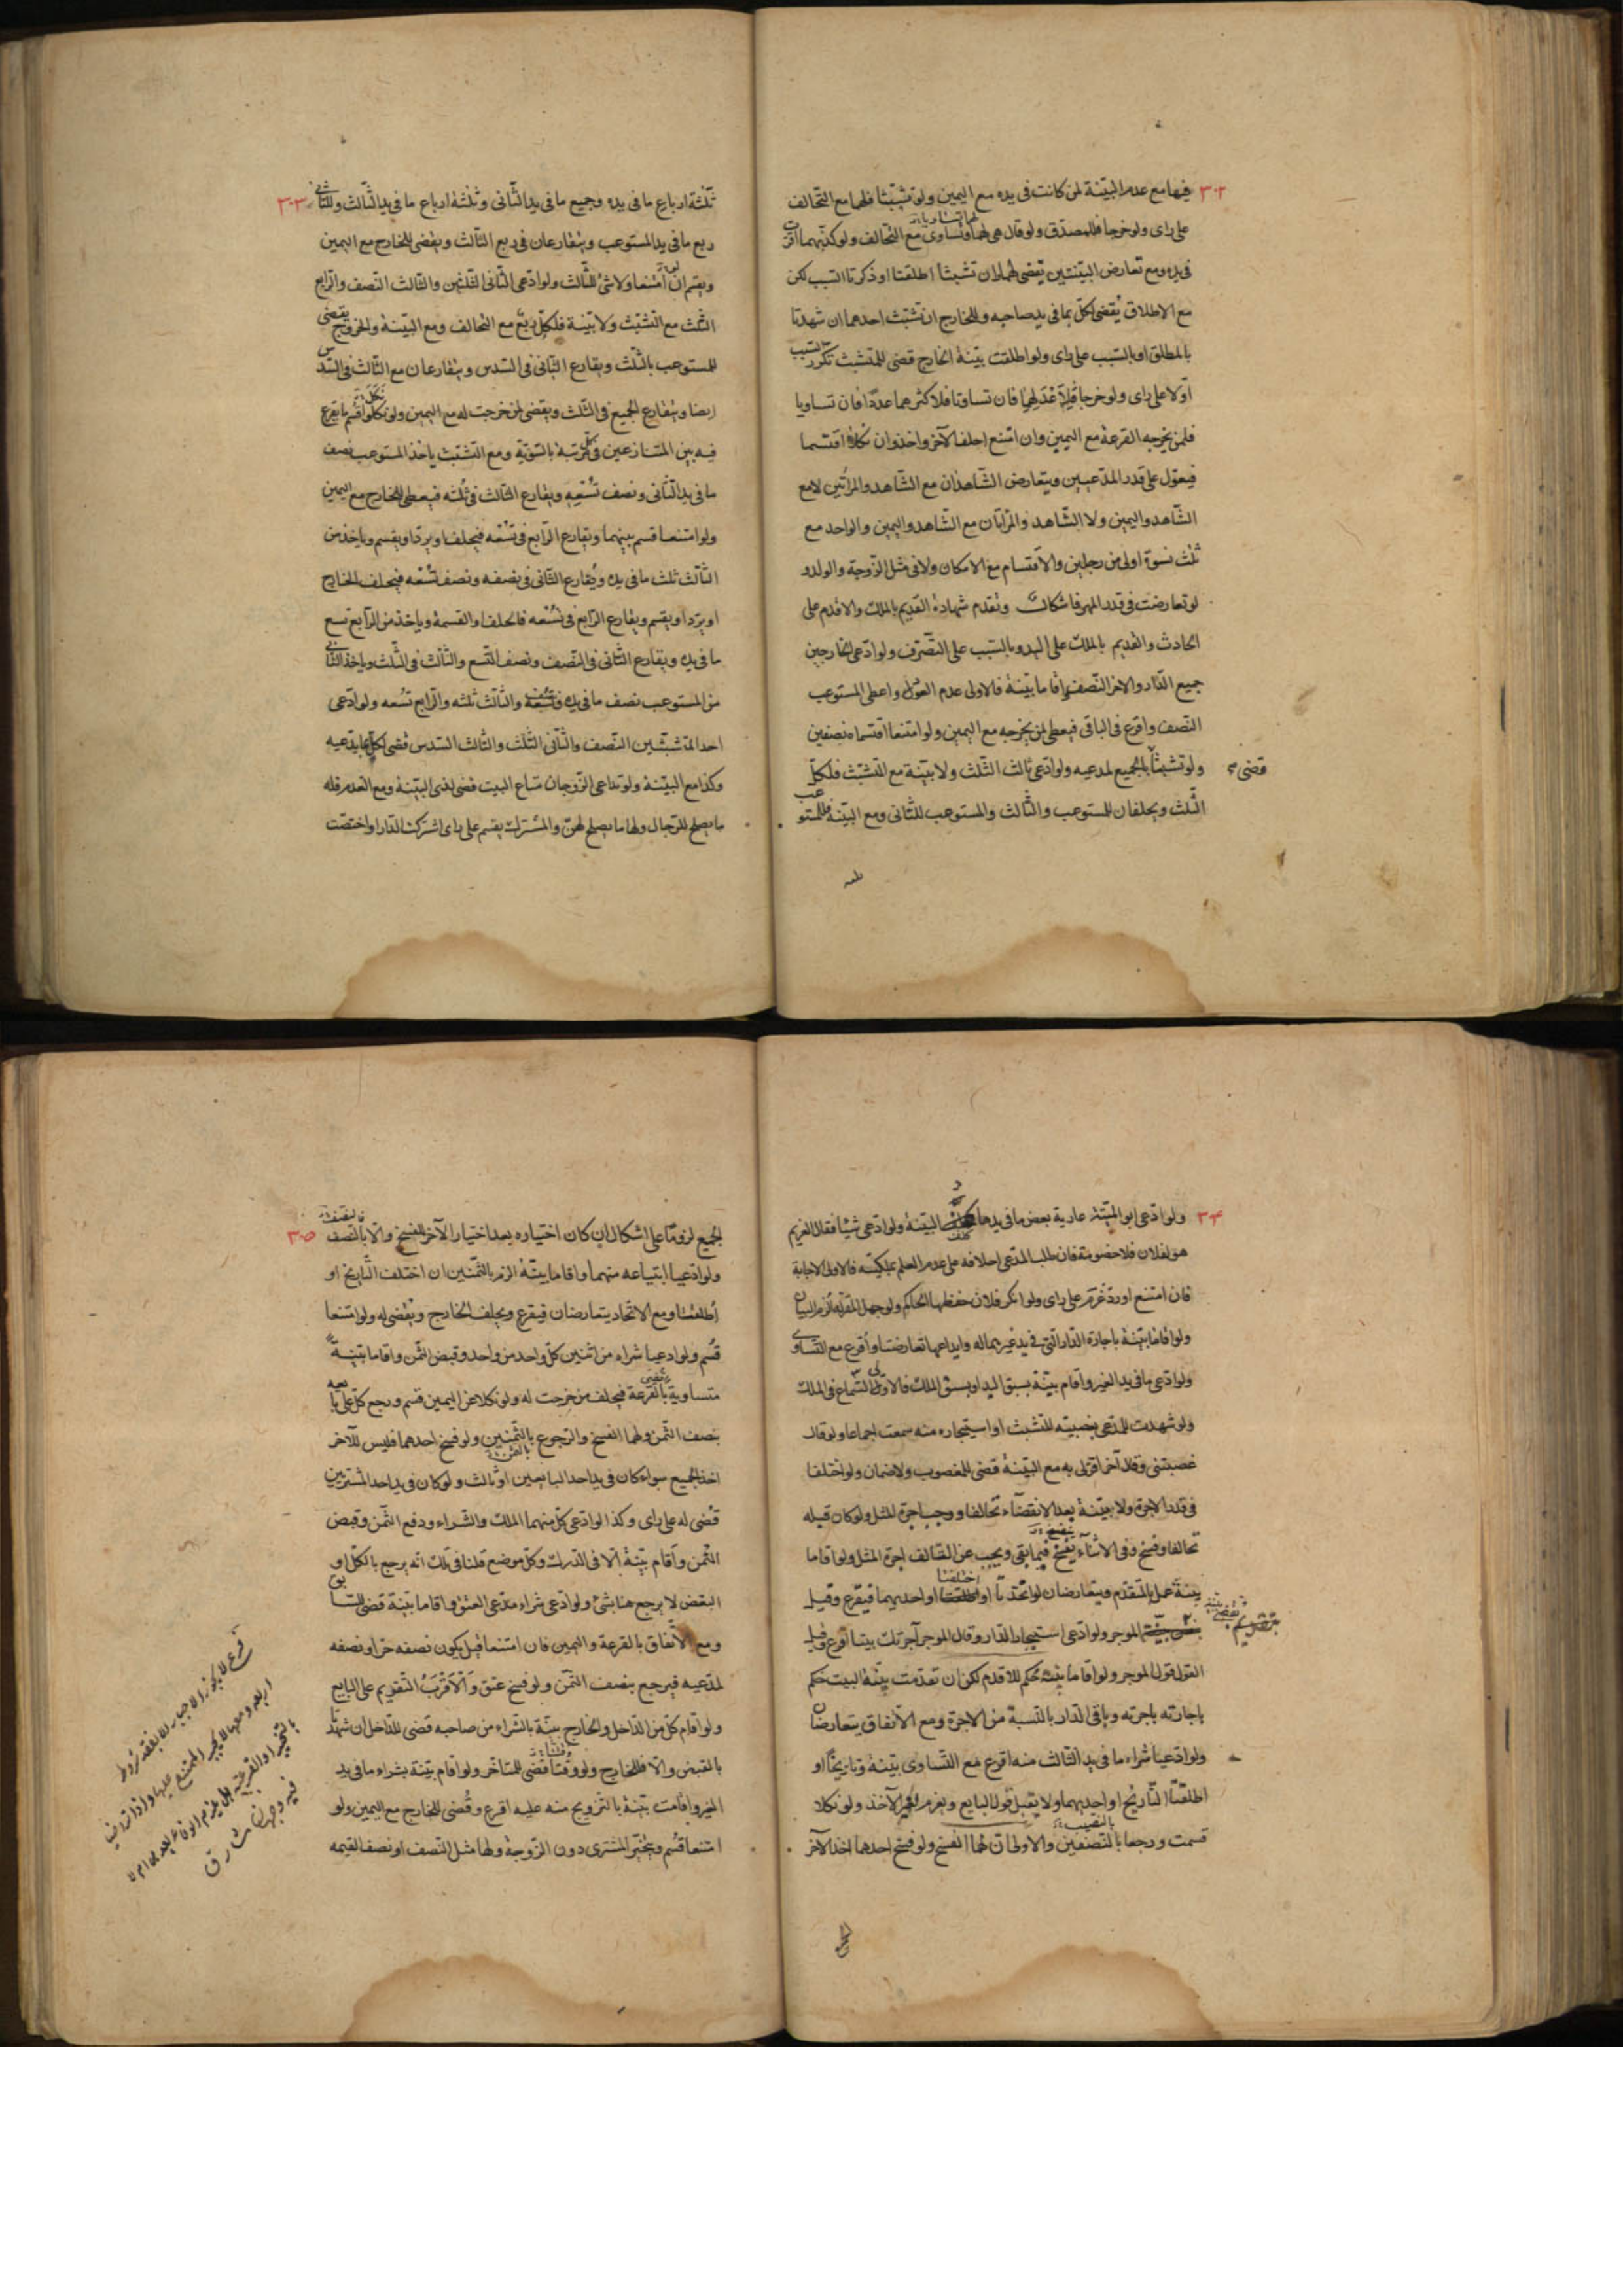 ٣٠٢
فيها مع عدم البيّنة لمن كانت فى يده مع اليمين ولو تشبّثا فلهما مع التحالف
على راى ولو خرجا فللمصدّق ولو قال هى لهما وتساوى مع التحالف ولو كذّبهما اقرّت
فى يده ومع تعارض البيّنتين يقضى لهما ان تشبثا اطلقتا او ذكرتا السبب لكن
مع الاطلاق يُقضى لكلّ بما فى يد صاحبه وللخارج ان تشبّث احدهما ان شهدتا
بالمطلق او بالسّبب على راى ولو اطلقت بيّنة الخارج قضى للمتشبث تكرر السبب
اولا على راى ولو خرجا فلاعدلهما فان تساوتا فلاكثرهما عددًا فان تساويا
فلمن يخرجه القرعة مع اليمين وان امتنع احلف الآخر واخذ وان نكلا اقتسما
فيعوّل على قدر المدّعيين ويتعارض الشّاهدان مع الشّاهد والمرأتين لا مع
الشّاهد واليمين ولا الشّاهد والمرأتان مع الشّاهد واليمين والواحد مع
ثلث نسوة اولى من رجلين والاقتسام مع الامكان ولا فى مثل الزّوجة والولد و
لو تعارضت فى قدر المهر فاشكال وتقدم شهادة القديم بالملك والاقدم على
الحادث والقديم بالملك على اليد وبالسّبب على التّصرّف ولو ادّعى الخارجين
جميع الدّار والاخر النّصف واقاما بيّنة فالاولى عدم العول واعطى المستوعب
النّصف واقرع فى الباقى فيعطى لمن يخرجه مع اليمين ولو امتنعا اقتسماه نصفين
قضى
ولو تشبثا بالجميع لمدعيه ولو ادّعى ثالث الثّلث ولا بيّنة مع التّشبّث فلكلّ
الثّلث ويحلفان للمستوعب والثّالث والمستوعب للثّانى ومع البيّنة فللمستوعب
٣٠٣
ثلثة ارباع ما فى يده وجميع ما فى يد الثّانى وثلثة ارباع ما فى يد الثّالث وللثانى
ربع ما فى يد المستوعب ويتقارعان فى ربع الثّالث ويقضى للخارج مع اليمين
ويقتسمان ان امتنعا ولا شئ للثّالث ولو ادّعى الثّانى الثلثين والثالث النّصف والرّابع
الثّلث مع التّشبّث ولا بيّنة فلكلّ ربع مع التّحالف ومع البيّنة والخروج يقضى
للمستوعب بالثّلث ويقارع الثّانى فى السّدس ويتقارعان مع الثّالث فى السّدس
ايضا ويتقارع الجميع فى الثّلث ويقضى لمن خرجت له مع اليمين ولو نكلوا اقتسم ما يقرع
فيه بين المتنازعين فى كلّ مرتبة بالسّويّة ومع التّشبّث ياخذ المستوعب نصف
ما فى يد الثّانى ونصف تُسْعِه ويقارع الثّالث فى ثُلثه فيعطى للخارج مع اليمين
ولو امتنعا قسم بينهما ويقارع الرّابع فى تسْعه فيحلفا ويردّا ويقسم وياخذ من
الثّالث ثلث ما فى يده ويُقارع الثّانى فى نصفه ونصف تُسْعه فيحلف الخارج
او يردّ او يقسم ويقارع الرّابع فى تُسْعه فالحلف او القسمة وياخذ من الرّابع تسع
ما فى يده ويقارع الثّانى فى النّصف ونصف التّسع والثّالث فى الثّلث وياخذ الثّانى
من المستوعب نصف ما فى يده ونصف تُسْعه والثّالث ثلثه والرّابع تُسعه ولو ادّعى
احد المتشبّثين النّصف والثّانى الثّلث والثّالث السّدس قضى لكلّ بما يدّعيه
وكذا مع البيّنة ولو تداعى الزّوجان متاع البيت قضى لذى البيّنة ومع العدم فله
ما يصلح للرّجال ولها ما يصلح لهنّ والمشترك يقسم على راى اشتركتا الدّار او اختصّت
٣٠٤
ولو ادّعى ابو الميّتة عارية بعض ما فى يدها البيّنة ولو ادّعى شيئا فقال الغريم
هو لفلان فلا خصومة فان طلب المدّعى احلافه على عدم العلم بملكيّته فالاولى الاجابة
فان امتنع او ردّ غرّم على راى ولو انكر فلان حفظها الحاكم ولو جهل المقرّ له اُلزم البيان
ولو اقاما بيّنة باجارة الدّار الّتى فى يد غيرهما له وايداعها تعارضتا واُقرع مع التساوى
ولو ادّعى ما فى يد الغير واقام بيّنة بسبق اليد او بسبق الملك فالاولى السّماع فى الملك
ولو شهدت للمدّعى بغصبيّته للمتشبث او استيجاره منه سمعت اجماعا ولو قال
غصبتنى وقال آخر اقرّ لى به مع البيّنة قضى للمغصوب ولا ضمان ولو اختلفا
فى قدر الاجرة ولا بيّنة بعد الانقضآء تحالفا ووجب اجرة المثل ولو كان قبله
تحالفا وفسخ وفى الاثنآء يفسخ فيما بقى ويجب عن السّالف اجرة المثل ولو اقاما
بيّنة عمل بالمتقدّم ويتعارضان لو اتّحدتا او اطلقتا او احديهما فيقرع وقيل
الموجر ولو ادّعى استيجار الدّار وقال الموجر آجرتك بيتا اقرع وقيل
القول قول الموجر ولو اقاما بيّنة حكم للاقدم لكن ان تقدّمت بيّنة البيت حكم
باجارته باجرته وباقى الدّار بالنّسبة من الاجرة ومع الاتّفاق يتعارضان
ولو ادّعيا شراء ما فى يد الثّالث منه اقرع مع التّساوى بيّنة وتاريخًا او
اطلقتا التّاريخ او احديهما ولا يقبل قول البايع ويغرم لغير الآخذ ولو نكلا
قسمت ورجعا بالنّصفين والاولى انّ لهما الفسخ ولو فسخ احدهما اخذ الآخر
٣٠٥
الجميع لزومًا على اشكال ان كان اختياره بعد اختيار الآخر الفسخ والّا بالنّصف
ولو ادّعيا ابتياعه منهما واقاما بيّنة الزم بالثّمنين ان اختلف التّاريخ او
اُطلقتا ومع الاتّحاد يتعارضان فيقرع ويحلف الخارج ويُقضى له ولو امتنعا
قُسم ولو ادعيا شراء من اثنين كلّ واحد من واحد وقبض الثّمن واقاما بيّنة
متساوية بالقرعة فيحلف من خرجت له ولو نكلا عن اليمين قسم ورجع كلّ على بايعه
بنصف الثّمن ولهما الفسخ والرّجوع بالثّمنين ولو فسخ احدهما فليس للآخر
اخذ الجميع سواء كان فى يد احد البايعين او ثالث ولو كان فى يد احد المشتريين
قُضى له على راى وكذا لو ادّعى كلّ منهما الملك والشّراء ودفع الثّمن وقبض
الثّمن واقام بيّنة الّا فى الدّرك وكلّ موضع قلنا فى ذلك انّه يرجع بالكلّ او
البعض لا يرجع هنا بشئ ولو ادّعى شراء مدّعى العتق واقاما بيّنة قضى للسّابق
ومع الاتّفاق بالقرعة واليمين فان امتنعا قيل يكون نصفه حرّا ونصفه
لمدّعيه فيرجع بنصف الثّمن ولو فسخ عتق وَالْاَقْرَبُ التّقويم على البايع
ولو اقام كلّ من الدّاخل والخارج بيّنة بالشّراء من صاحبه قضى للدّاخل ان شهدتا
بالقبض والّا فللخارج ولو وُقّتتا قُضى للمتاخّر ولو اقام بيّنة بشراء ما فى يد
الغير واقامت بيّنة بالتّزويج منه عليه اقرع وقُضى للخارج مع اليمين ولو
امتنعا قُسم ويتخيّر المشترى دون الزّوجة ولها مثل النّصف او نصف القيمه